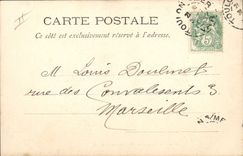 CARTE POSTALE
Ce côté est exclusivement réservé à l'adresse.
M Louis
rue des Convalescents 3
Marseille